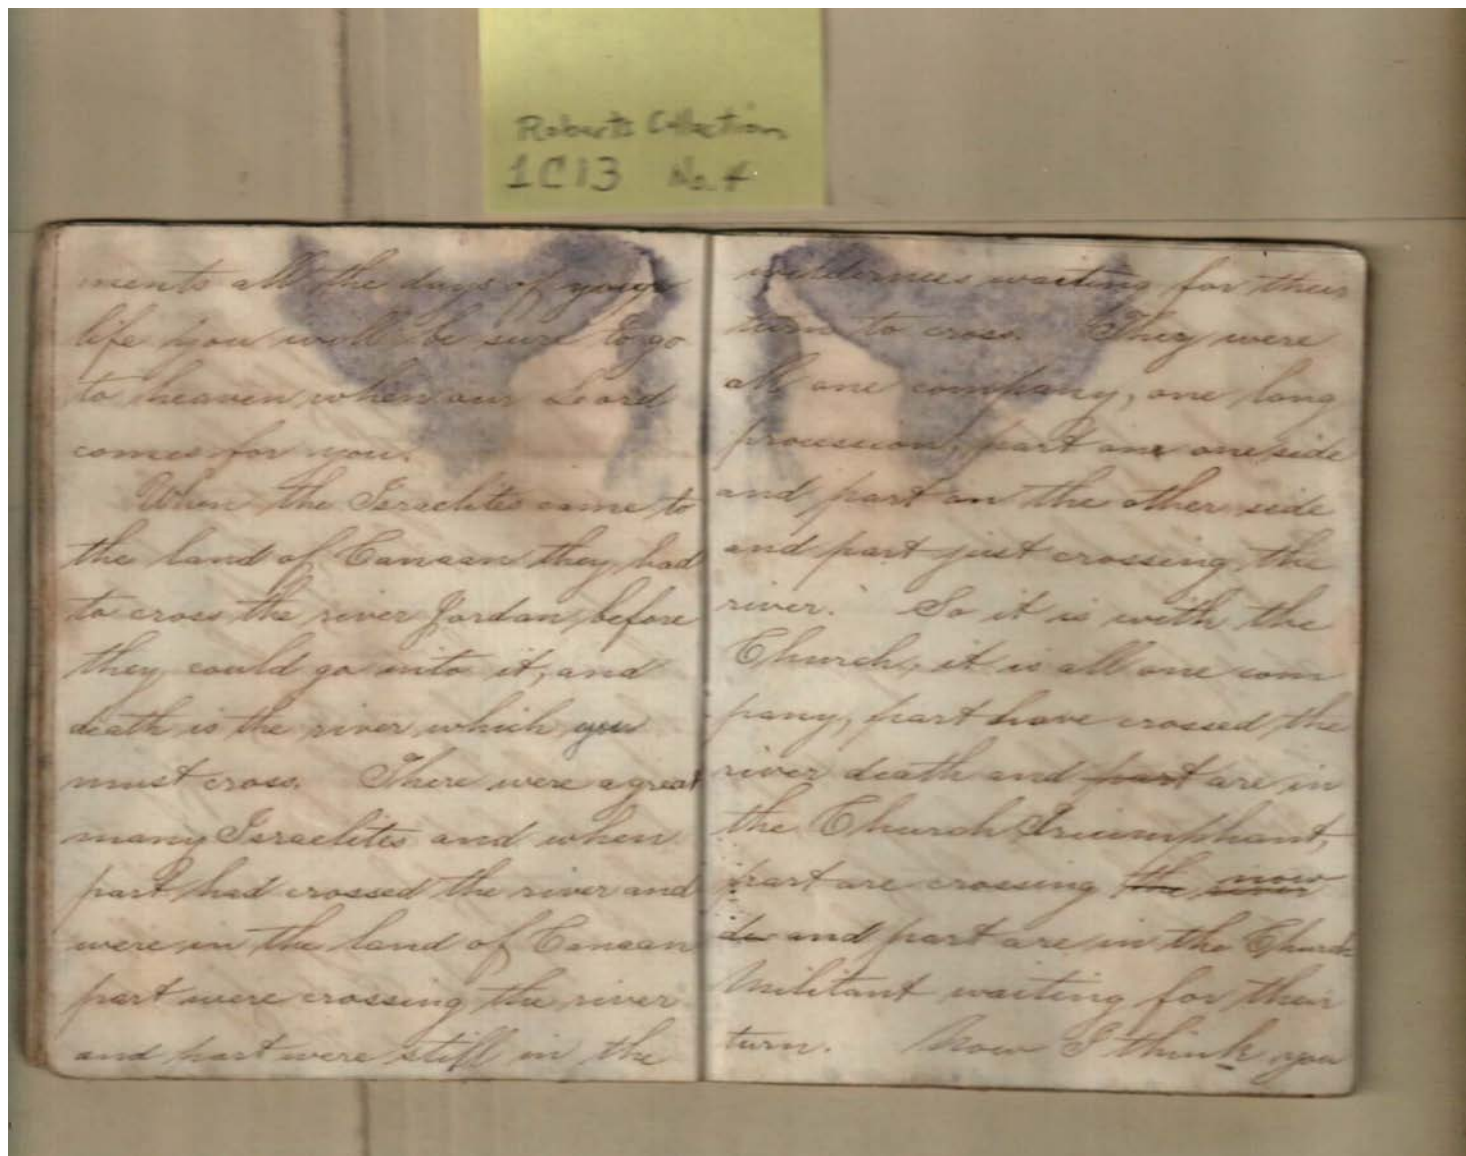 Roberts Collection
1C13 No. 4
ments all the days of your
life you will be sure to go
to heaven when our Lord
comes for you.
When the Israelites came to
the land of Canaan they had
to cross the river Jordan before
they could go into it, and
death is the river which you
must cross. There were a great
many Israelites and when
part had crossed the river and
were in the land of Canaan
part were crossing the river
and part were still in the
wilderness waiting for their
turn to cross. They were
all one company, one long
procession, part on one side
and part on the other side
and part just crossing the
river. So it is with the
Church, it is all one com
pany, part have crossed the
river death and part are in
the Church Triumphant,
part are crossing the now
and part are in the Church
Militant waiting for their
turn. Now I think you